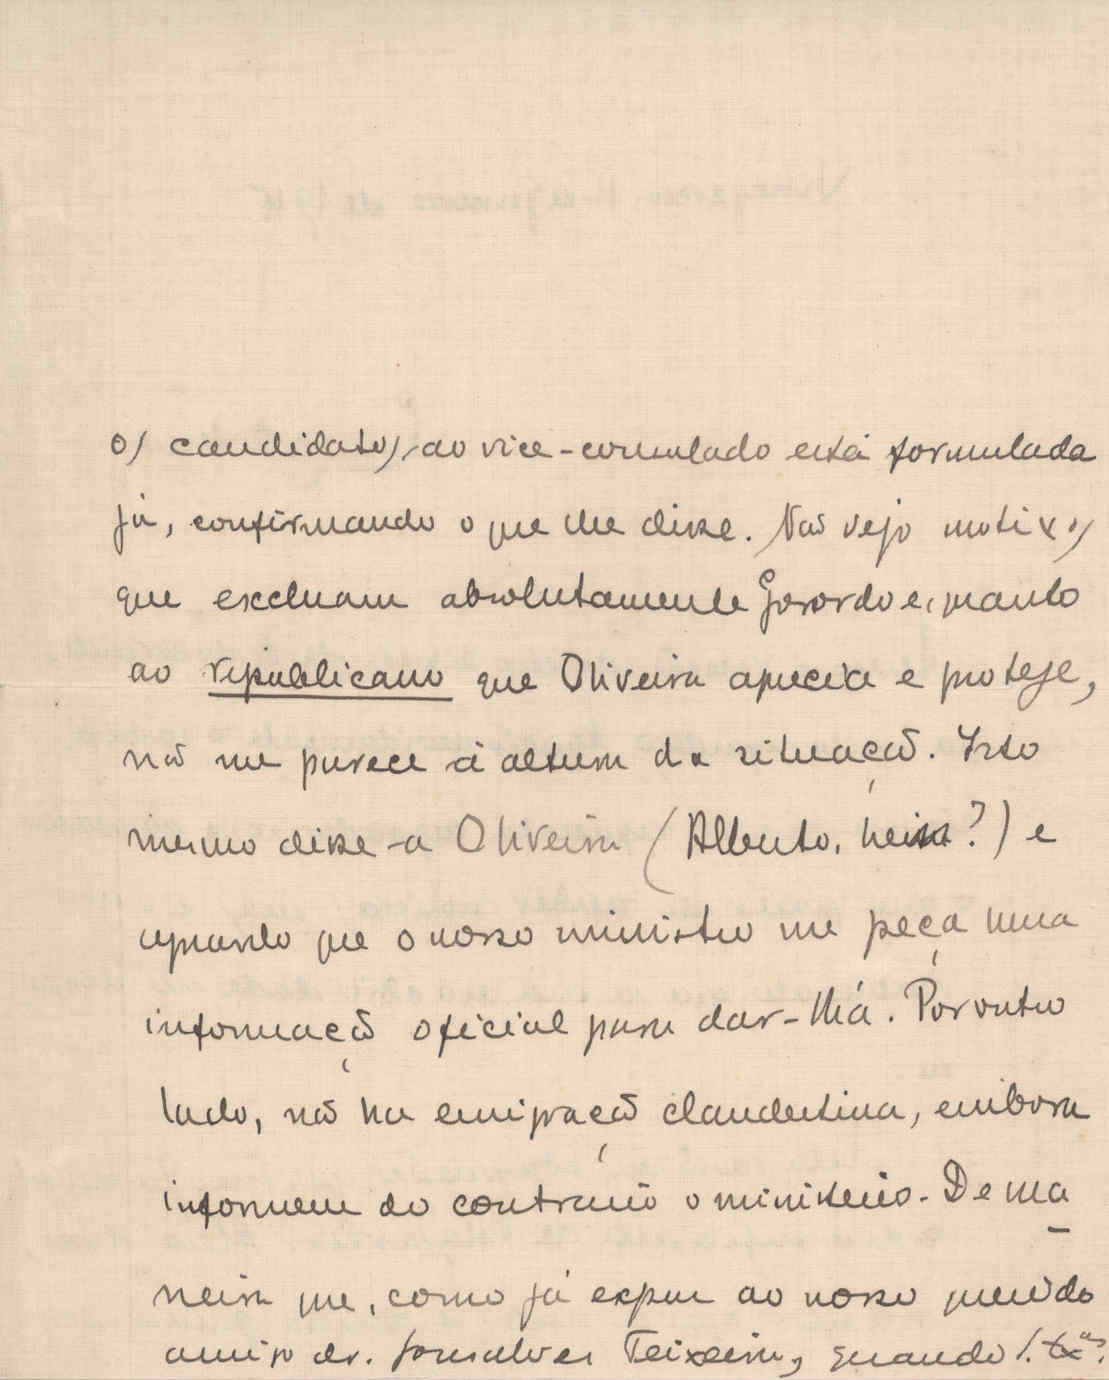 os candidatos, ao vice-consulado está formulada
já, confirmando o que lhe disse. Não vejo motivos
que excluam absolutamente Gorordo e, quanto
ao republicano que Oliveira aprecia e protege,
não me parece à altura da situação. Isto
mesmo disse-a Oliveira (Alberto, hein?) e
aguardo que o nosso ministro me peça uma
informação oficial para dar-lha. Por outro
lado, não ha emigração clandestina, embora
informem do contrario o ministerio. De ma-
neira que, como já expus ao nosso querido
amigo dr. Gonsalves Teixeira, quando